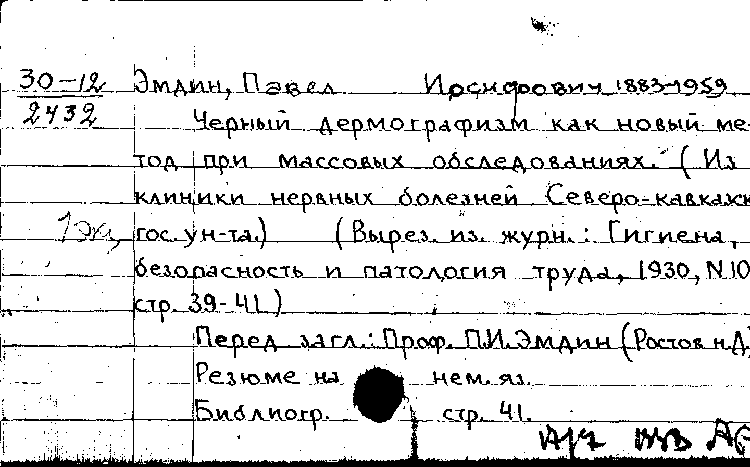 30-12
2432
Эмдин, Павел Иосифович 1883-1959
Черный дермографизм как новый ме-
тод при массовых обследованиях. (Из
клиники нервных болезней Северо-кавказск
1 экз, гос. ун-та.) (Вырез. из. журн.: Гигиена,
безопасность и патология труда, 1930, N10
стр. 39-41)
Перед загл.: Проф. П.И. Эмдин (Ростов н.Д)
Резюме на нем. яз.
Библиогр. стр. 41.